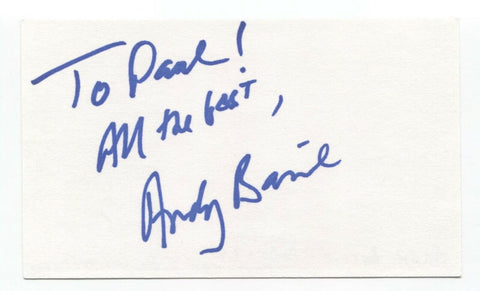 To Paul!
All the best,
Andy Basil